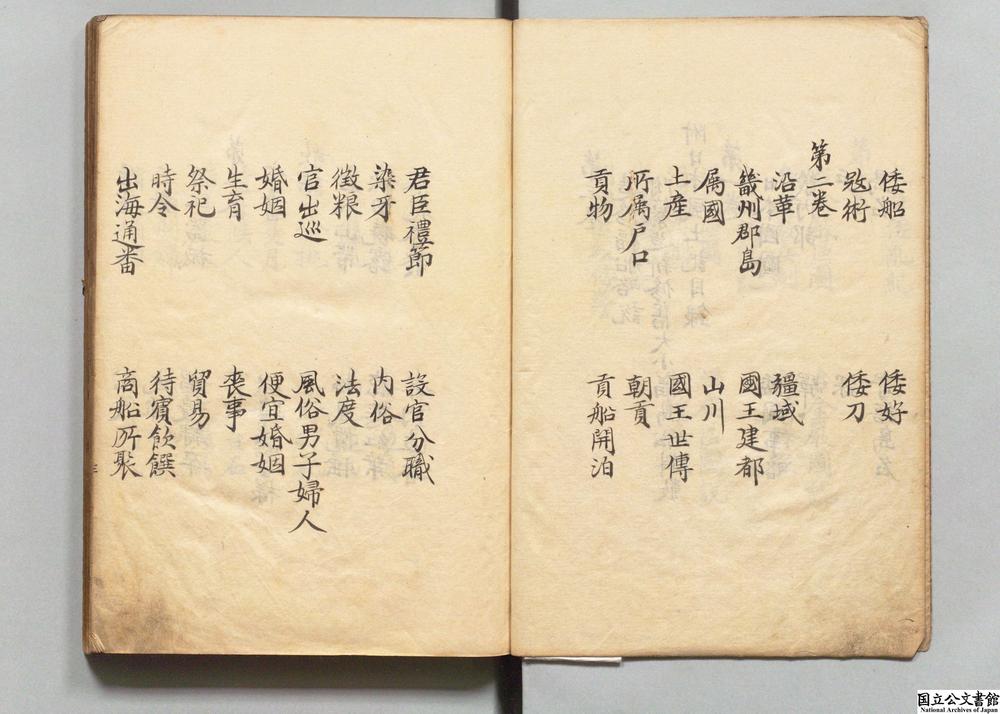 倭船　倭好
寇術　倭刀
第二卷
沿革　疆域
畿州郡島　國王建都
属國　山川
土産　國王世傳
所属户口　朝貢
貢物　貢船開泊
君臣禮節　設官分職
染牙　内俗
徴粮　法度
官出巡　風俗男子婦人
婚姻　便宜婚姻
生育　喪事
祭祀　貿易
時令　待賓飲饌
出海通番　商船所聚
国立公文書館
National Archives of Japan